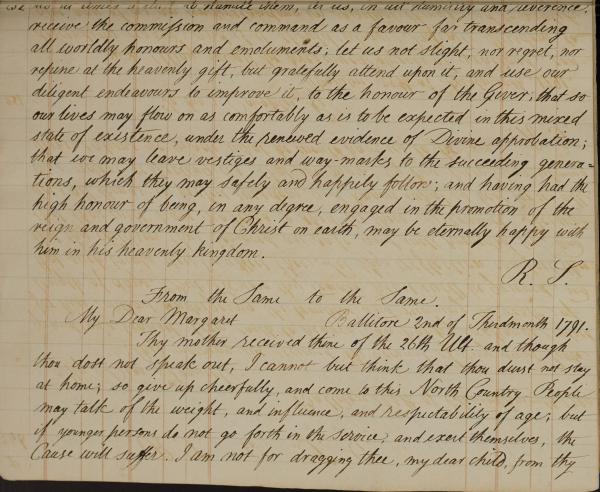 us in times to humble them, let us, in all humility and reverence,
receive the commission and command as a favour far transcending
all worldly honours and emoluments; let us not slight, nor regret, nor
repine at the heavenly gift, but gratefully attend upon it, and use our
diligent endeavours to improve it, to the honour of the Giver; that so
our lives may flow on as comfortably as is to be expected in this mixed
state of existence, under the renewed evidence of Divine approbation;
that we may leave vestiges and way-marks to the succeeding genera=
tions, which they may safely and happily follow; and having had the
high honour of being, in any degree, engaged in the promotion of the
reign and government of Christ on earth, may be eternally happy with
him in his heavenly kingdom.
R. S.
From the Same to the Same.
My Dear Margaret Ballitore 2nd of Thirdmonth 1791.
Thy mother received thine of the 26th Ult. and though
thou dost not speak out, I cannot but think that thou durst not stay
at home; so give up cheerfully, and come to this North Country. People
may talk of the weight, and influence, and respectability of age; but
if younger persons do not go forth in the service, and exert themselves, the
Cause will suffer. I am not for dragging thee, my dear child, from thy